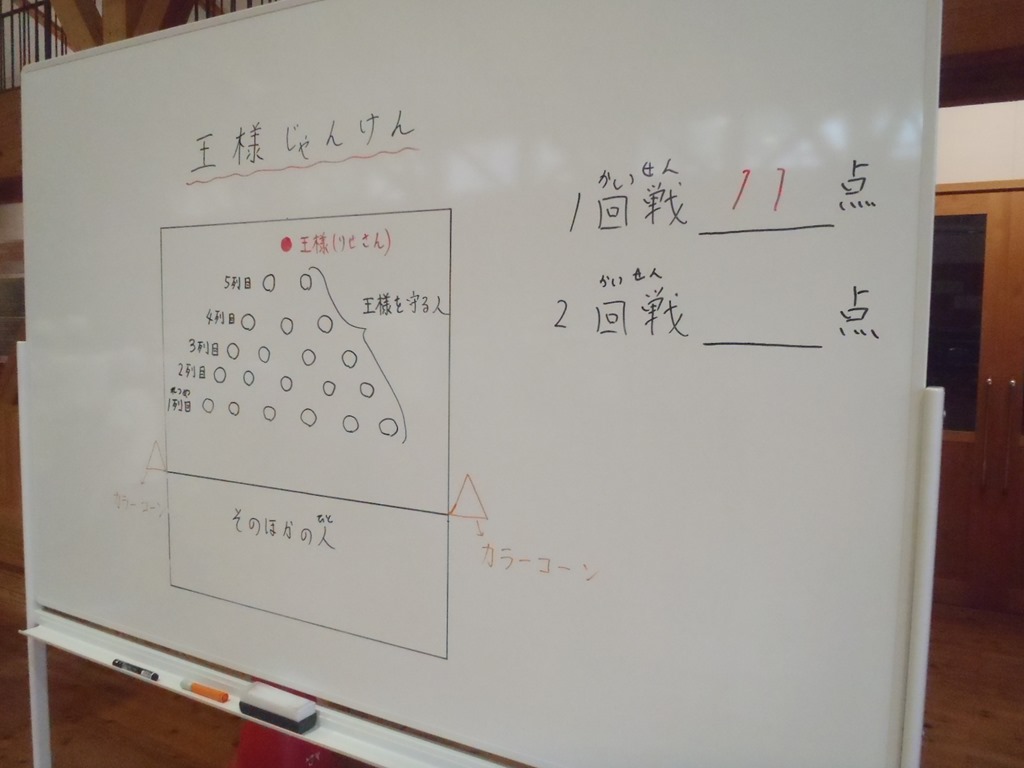 王様じゃんけん
王様(りせさん)
5列目
王様を守る人
4列目
3列目
2列目
1列目
カラーコーン
そのほかの人
ひと
カラーコーン
かいせん
1回戦 11 点
かいせん
2回戦 点